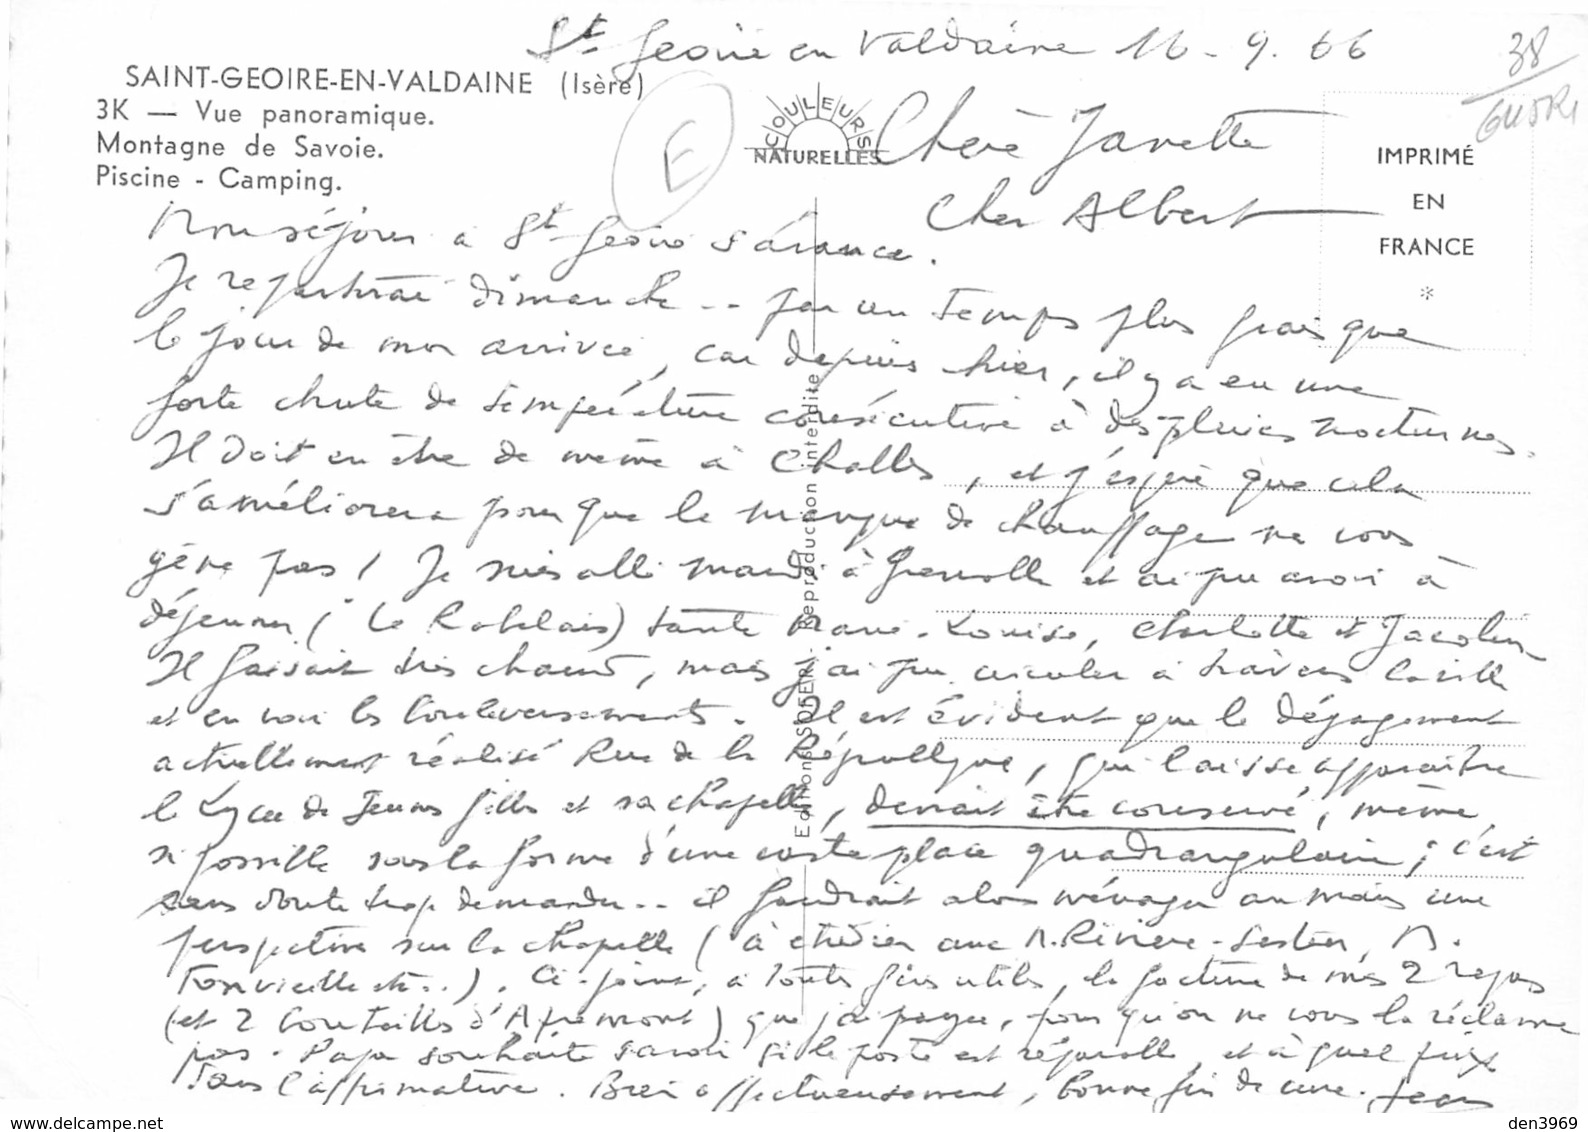 St Geoire en Valdaine 16-9.66
38
SAINT-GEOIRE-EN-VALDAINE (Isère)
3K — Vue panoramique.
Montagne de Savoie.
Piscine - Camping.
E
COULEURS
NATURELLES
IMPRIMÉ
EN
FRANCE
*
Chère Janette
Cher Albert
Mon séjour à St Geoire s'avance.
Je repartirai dimanche -- par un temps plus frais que
le jour de mon arrivée, car depuis hier, il y a eu une
forte chute de température consécutive à des pluies nocturnes.
Il doit en être de même à Challes, et j'espère que cela
s'améliorera pour que le manque de chauffage ne vous
gêne pas ! Je suis allé mardi à Grenoble et ai pu avoir à
déjeuner (Le Rabelais) tante Marie-Louise, Charlotte et Jacotin
Il faisait très chaud, mais j'ai pu circuler à travers la ville
et en voir les bouleversements. Il est évident que le dégagement
actuellement réalisé Rue de la République, qui laisse apparaître
le Lycée de Jeunes filles et sa chapelle, devrait être conservé, même
si possible sous la forme d'une vaste place quadrangulaire ; c'est
sans doute trop demander -- il faudrait alors ménager au moins une
perspective sur la chapelle (à étudier avec M. Rivière-Sestier, M.
Fonvieille etc..). Ci-joint, à toutes fins utiles, la facture de mes 2 repas
(et 2 bouteilles d'Apremont) que j'ai payée, pour qu'on ne vous la réclame
pas. Papa souhaite savoir si le poste est réparable, et à quel prix
dans l'affirmative. Bien affectueusement, bonne fin de cure. Jean
Editions SOFER - Reproduction interdite
den3969